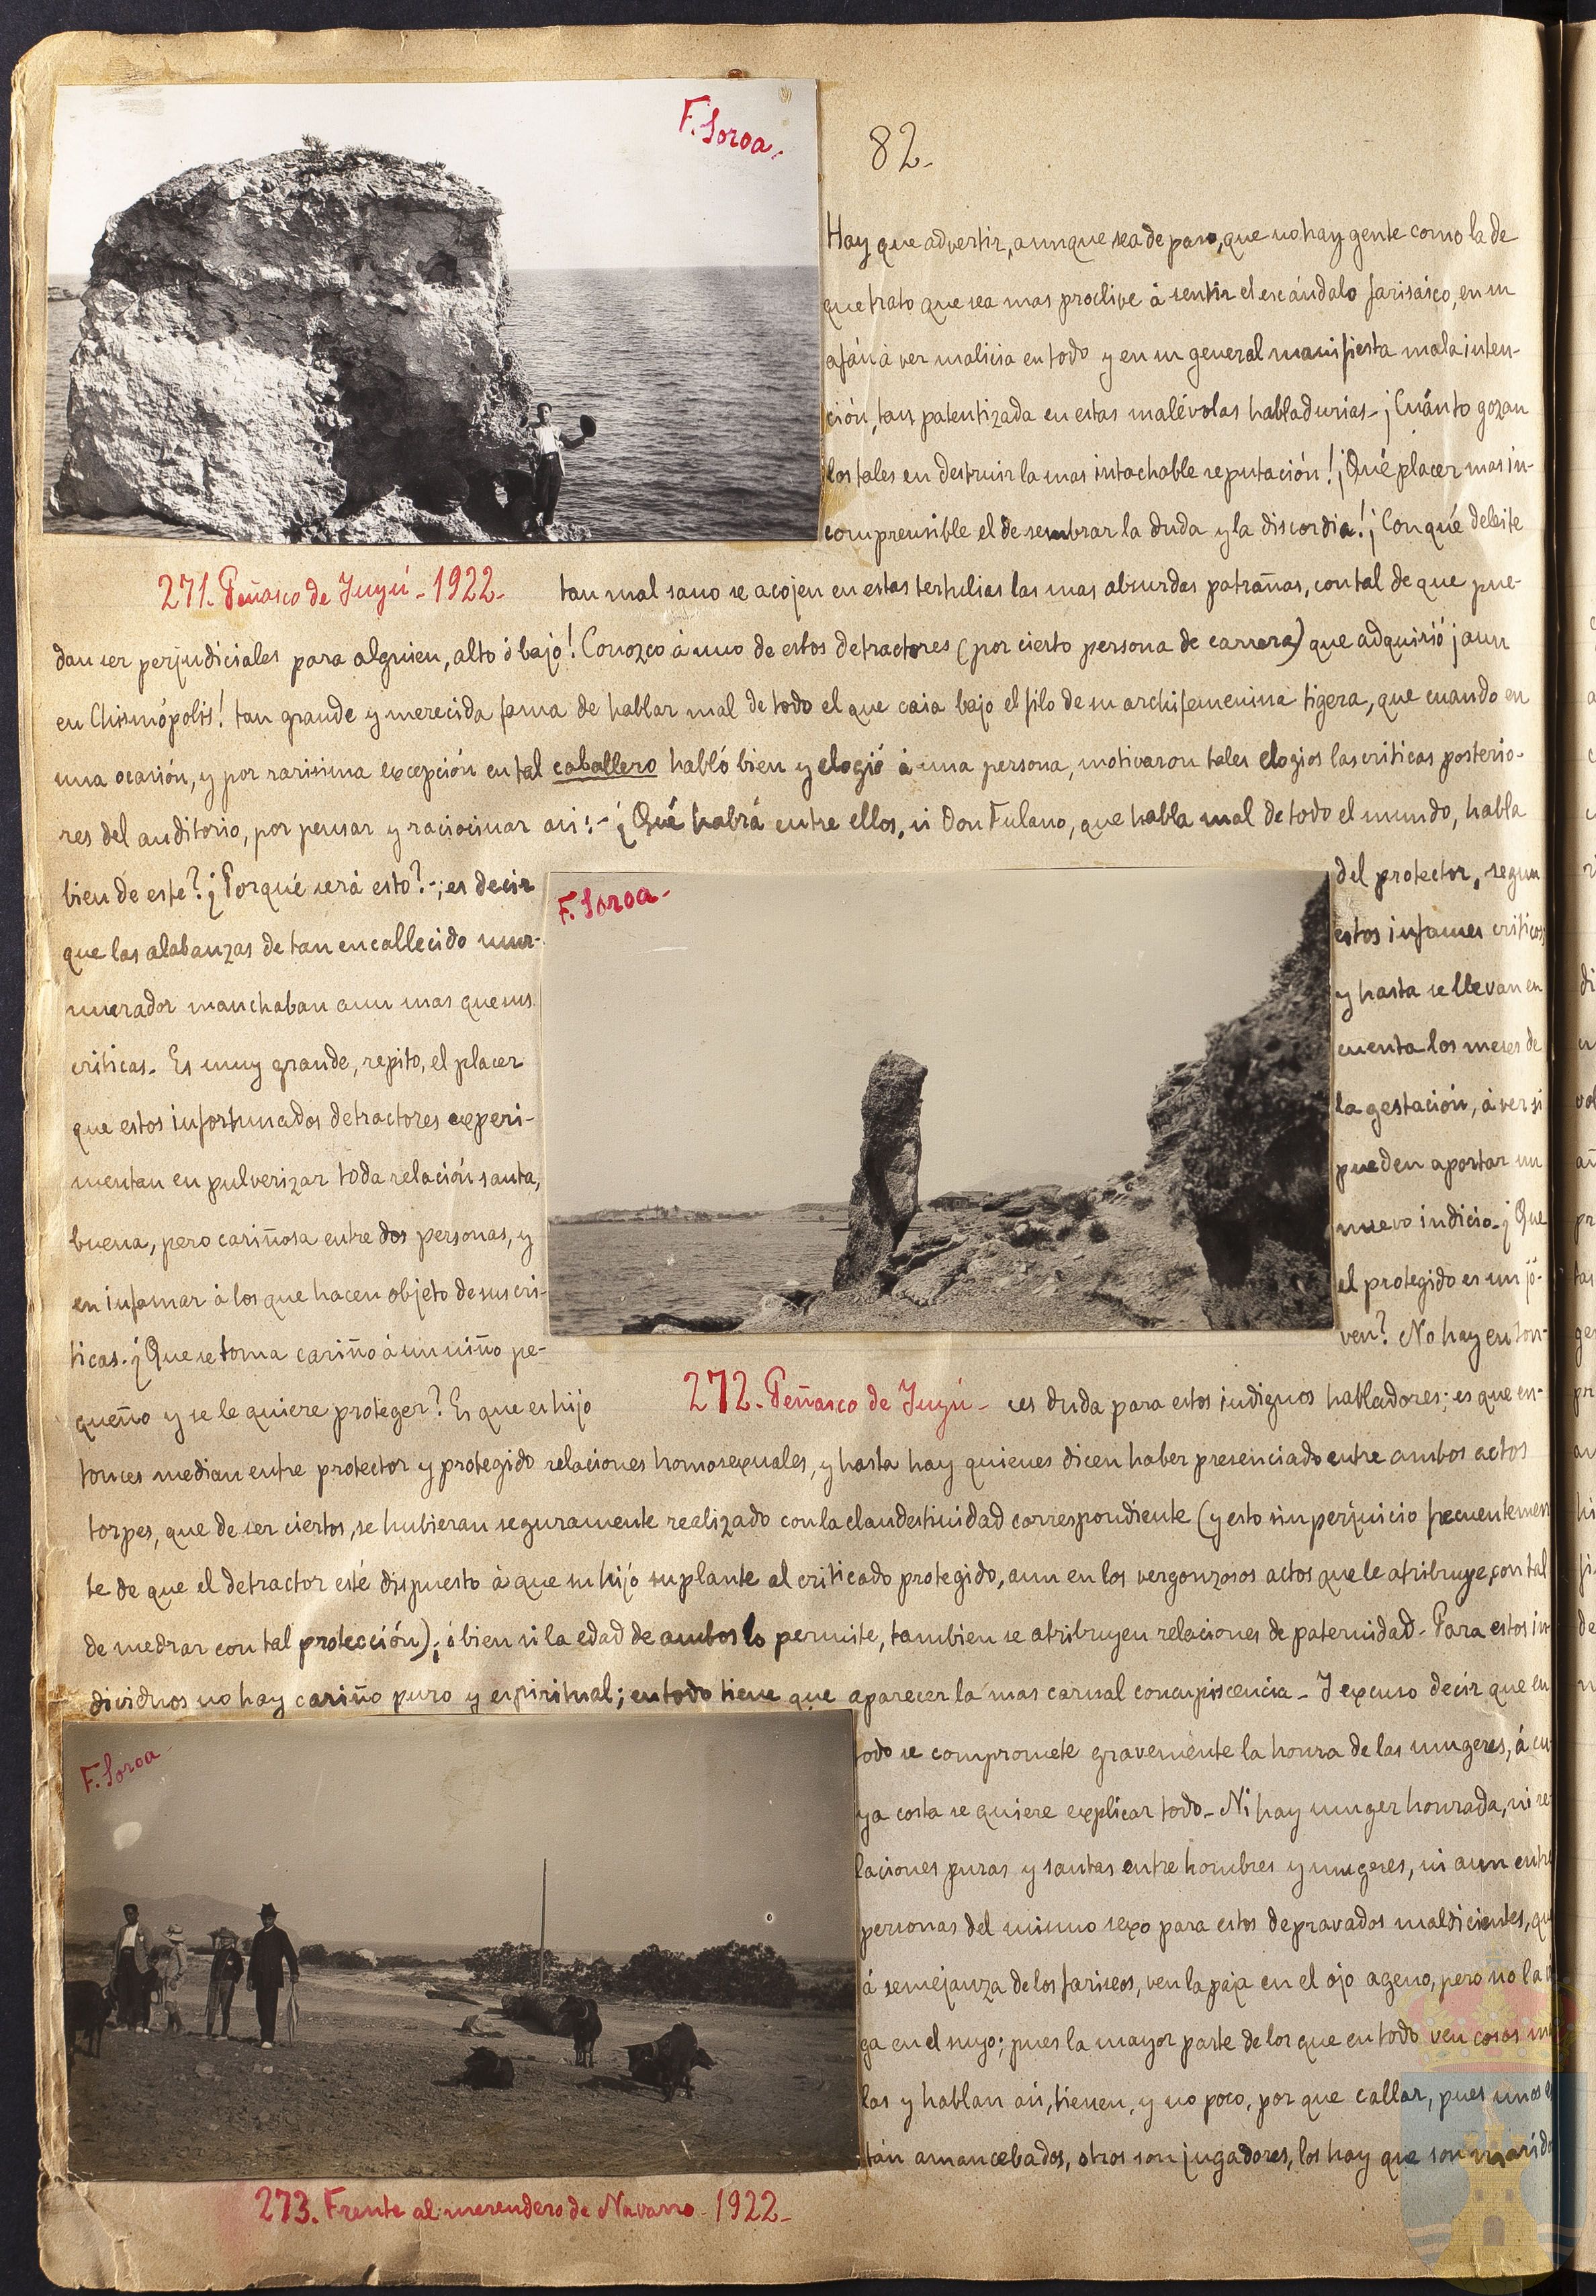 F. Soroa-
82-
Hay que advertir, aunque sea de paso, que no hay gente como la de
que trato que sea mas proclive á sentir el escándalo farisáico, en su
afán á ver malicia en todo y en su general manifiesta mala inten-
ción, tan patentizada en estas malévolas habladurias- ¡Cuánto gozan
los tales en destruir la mas intachable reputación! ¡Qué placer mas in-
comprensible el de sembrar la duda y la discordia! ¡Con qué deleite
271. Peñasco de Juyú - 1922-
tan mal sano se acojen en estas tertulias las mas absurdas patrañas, con tal de que pue-
dan ser perjudiciales para alguien, alto ó bajo! Conozco á uno de estos detractores (por cierto persona de carrera) que adquirió ¡aun
en Chismópolis! tan grande y merecida fama de hablar mal de todo el que caia bajo el filo de su archifemenina tigera, que cuando en
una ocasión, y por rarisima excepción en tal caballero habló bien y elogió á una persona, motivaron tales elogios las criticas posterio-
res del auditorio, por pensar y raciocinar asi: - ¿Qué habrá entre ellos, si Don Fulano, que habla mal de todo el mundo, habla
bien de este? ¿Porqué será esto? -; es decir
que las alabanzas de tan encallecido mur-
murador manchaban aun mas que sus
criticas- Es muy grande, repito, el placer
que estos infortunados detractores experi-
mentan en pulverizar toda relación santa,
buena, pero cariñosa entre dos personas, y
en infamar á los que hacen objeto de sus cri-
ticas- ¿Que se toma cariño á un niño pe-
queño y se le quiere proteger? Es que es hijo
F. Soroa-
del protector, segun
estos infames criticos
y hasta se llevan en
cuenta los meses de
la gestación, á ver si
pueden aportar un
nuevo indicio- ¿Que
el protegido es un jó-
ven? No hay en ton-
272. Peñasco de Juyú-
ces duda para estos indignos habladores; es que en-
tonces median entre protector y protegido relaciones homosexuales, y hasta hay quienes dicen haber presenciado entre ambos actos
torpes, que de ser ciertos, se hubieran seguramente realizado con la clandestinidad correspondiente (y esto sin perjuicio frecuentemen
te de que el detractor esté dispuesto á que su hijo suplante al criticado protegido, aun en los vergonzosos actos que le atribuye, con tal
de medrar con tal protección); ó bien si la edad de ambos lo permite, tambien se atribuyen relaciones de paternidad- Para estos in
dividuos no hay cariño puro y espiritual; en todo tiene que aparecer la mas carnal concupiscencia- Y excuso decir que en
F. Soroa-
todo se compromete gravemente la honra de las mugeres, á cu
ya costa se quiere explicar todo- Ni hay muger honrada, ni re
laciones puras y santas entre hombres y mugeres, ni aun entre
personas del mismo sexo para estos depravados maldicientes, qu
á semejanza de los fariseos, ven la paja en el ojo ageno, pero no la vi
ga en el suyo; pues la mayor parte de los que en todo ven cosas ma
las y hablan asi, tienen, y no poco, por que callar, pues unos es
tán amancebados, otros son jugadores, los hay que son marido
273. Frente al merendero de Navarro - 1922-